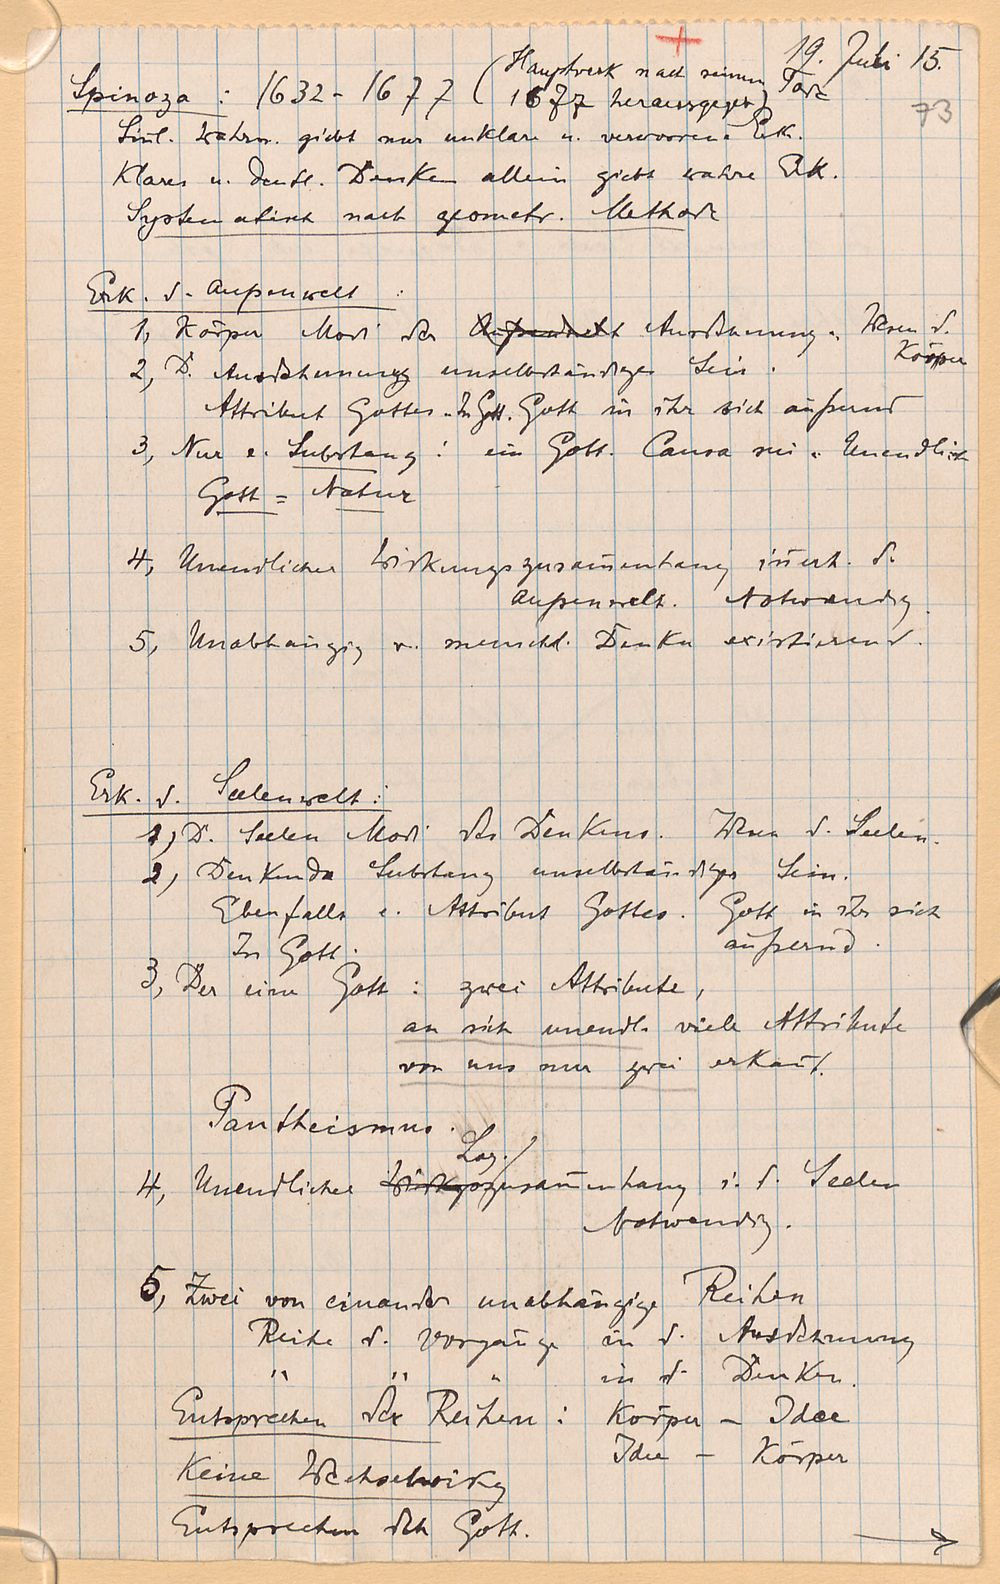 19. Juli 15.
73
Spinoza : 1632 - 1677 (Hauptwerk nach seinem Tode
1677 herausgegeben)
Sinl. Wahrn. giebt nur unklare u. verworrene Erk.
Klares u. deutl. Denken allein giebt wahre Erk.
Systematisch nach geometr. Methode
Erk. d. Außenwelt :
1, Körper Modi der Außenwelt Ausdehnung. Wesen d.
Körper
2, D. Ausdehnung unselbständiges Sein.
Attribut Gottes. In Gott. Gott in ihr sich äußernd
3, Nur e. Substanz : ein Gott. Causa sui. Unendlich
Gott = Natur
4, Unendlicher Wirkungszusam̄enhang in̄erh. d.
Außenwelt. Notwendig.
5, Unabhängig v. menschl. Denken existierend.
Erk. d. Seelenwelt :
1, D. Seelen Modi des Denkens. Wesen d. Seelen.
2, Denkende Substanz unselbständiges Sein.
Ebenfalls e. Attribut Gottes. Gott in ihr sich
In Gott. äußernd.
3, Der eine Gott : zwei Attribute,
an sich unendl. viele Attribute
von uns nur zwei erkan̄t.
Pantheismus.
Log.
4, Unendlicher Wirkgszusam̄enhang i. d. Seelen
Notwendig.
5, Zwei von einander unabhängige Reihen
Reihe d. Vorgänge in d. Ausdehnung
" " " in d. Denken.
Entsprechen der Reihen : Körper - Idee
Idee - Körper
Keine Wechselwirkg
Entsprechen dch Gott.